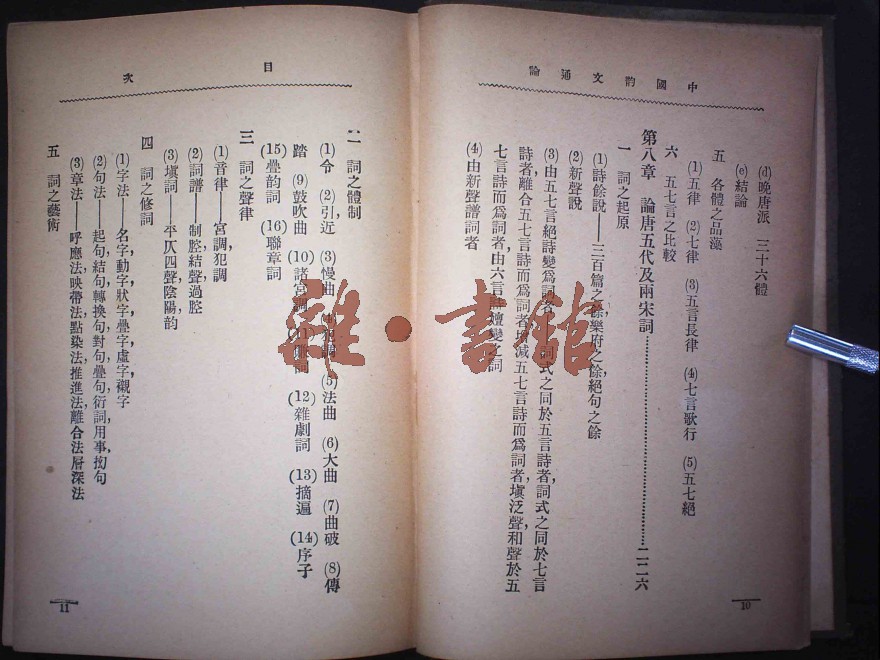 中國韵文通論
(d)晚唐派　三十六體
(e)結論
五　各體之品藻
(1)五律　(2)七律　(3)五言長律　(4)七言歌行　(5)五七絕
六　五七言之比較
第八章　論唐五代及兩宋詞……二二六
一　詞之起原
(1)詩餘說——三百篇之餘,樂府之餘,絕句之餘
(2)新聲說
(3)由五七言絕詩變爲詞者,詞式之同於五言詩者,詞式之同於七言
詩者,離合五七言詩而爲詞者,增減五七言詩而爲詞者,塡泛聲和聲於五
七言詩而爲詞者,由六言詩嬗變之詞
(4)由新聲譜詞者
10
目次
二　詞之體制
(1)令　(2)引,近　(3)慢曲　(5)法曲　(6)大曲　(7)曲破　(8)傳
踏　(9)鼓吹曲　(10)諸宮調　(12)雜劇詞　(13)摘遍　(14)序子
(15)疊韵詞　(16)聯章詞
三　詞之聲律
(1)音律——宮調,犯調
(2)詞譜——制腔,結聲,過腔
(3)塡詞——平仄,四聲,陰陽,韵
四　詞之修詞
(1)字法——名字,動字,狀字,疊字,虛字,襯字
(2)句法——起句,結句,轉換句,對句,疊句,衍詞,用事,拗句
(3)章法——呼應法,映帶法,點染法,推進法,離合法,層深法
五　詞之藝術
11
雜·書館